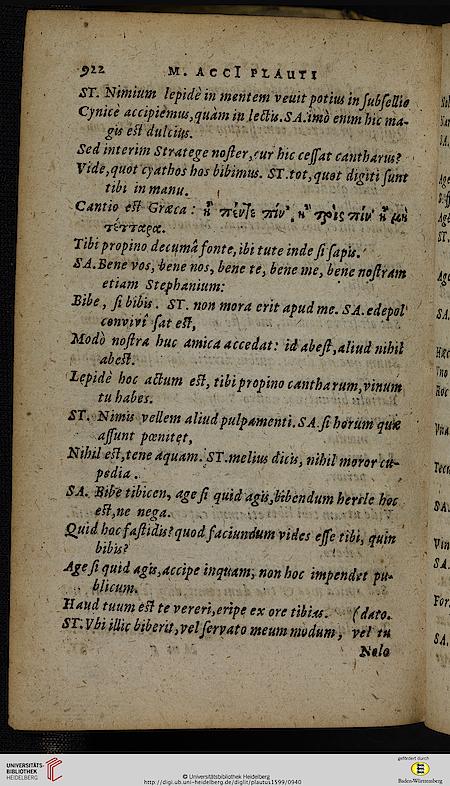 922 M. ACCI PLAUTI
ST. Nimium lepidè in mentem venit potius in subsellio
Cynicè accipiemus, quam in lectis. SA. imò enim hic ma-
gis est dulcius.
Sed interim Stratege noster, cur hic cessat cantharus?
Vide, quot cyathos hos bibimus. ST. tot, quot digiti sunt
tibi in manu.
Cantio est Græca: ἢ πέντε πίν', ἢ τρὶς πίν' ἢ μὴ
τέτταρα.
Tibi propino decumâ fonte, ibi tute inde si sapis.
SA. Bene vos, bene nos, bene te, bene me, bene nostram
etiam Stephanium:
Bibe, si bibis. ST. non mora erit apud me. SA. edepol
convivî sat est,
Modò nostra huc amica accedat: id abest, aliud nihil
abest.
Lepidè hoc actum est, tibi propino cantharum, vinum
tu habes.
ST. Nimis vellem aliud pulpamenti. SA. si horum quæ
assunt pœnitet,
Nihil est, tene aquam. ST. melius dicis, nihil moror cu-
pedia.
SA. Bibe tibicen, age si quid agis, bibendum hercle hoc
est, ne nega.
Quid hoc fastidis? quod faciundum vides esse tibi, quin
bibis?
Age si quid agis, accipe inquam, non hoc impendet pu-
blicum.
Haud tuum est te vereri, eripe ex ore tibias. (dato.
ST. Vbi illic biberit, vel servato meum modum, vel tu
Nolo
UNIVERSITÄTS-
BIBLIOTHEK
HEIDELBERG
© Universitätsbibliothek Heidelberg
http://digi.ub.uni-heidelberg.de/diglit/plautus1599/0940
gefördert durch
Baden-Württemberg